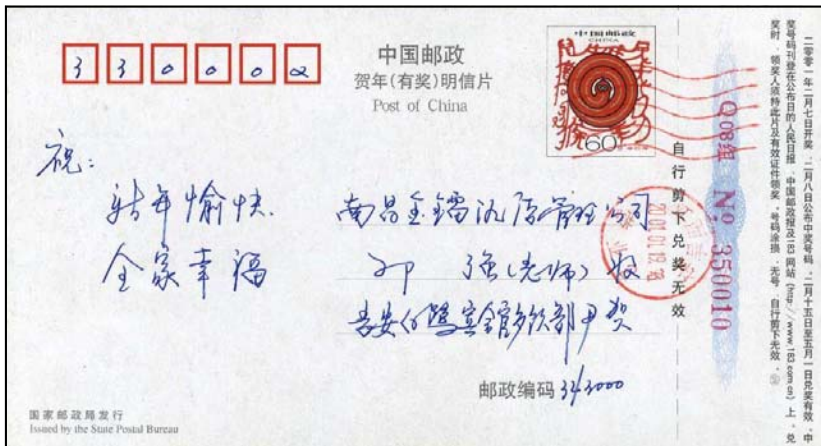 330000
中国邮政
贺年(有奖)明信片
Post of China
中国邮政
CHINA
60
祝:
新年愉快
全家幸福
南昌
强(老师) 收
吉安 宾馆
邮政编码 343000
国家邮政局发行
Issued by the State Postal Bureau
自行剪下兑奖无效
Q08组 No 350010
二零零一年二月七日开奖,二月八日公布中奖号码,二月十五日至五月一日兑奖有效。中
奖号码刊登在公布日的人民日报、中国邮政报及183网站(http://www.183.com.cn)上。兑
奖时,领奖人须持此片及有效证件领奖,号码涂损、无号、自行剪下无效。
2001.01.12